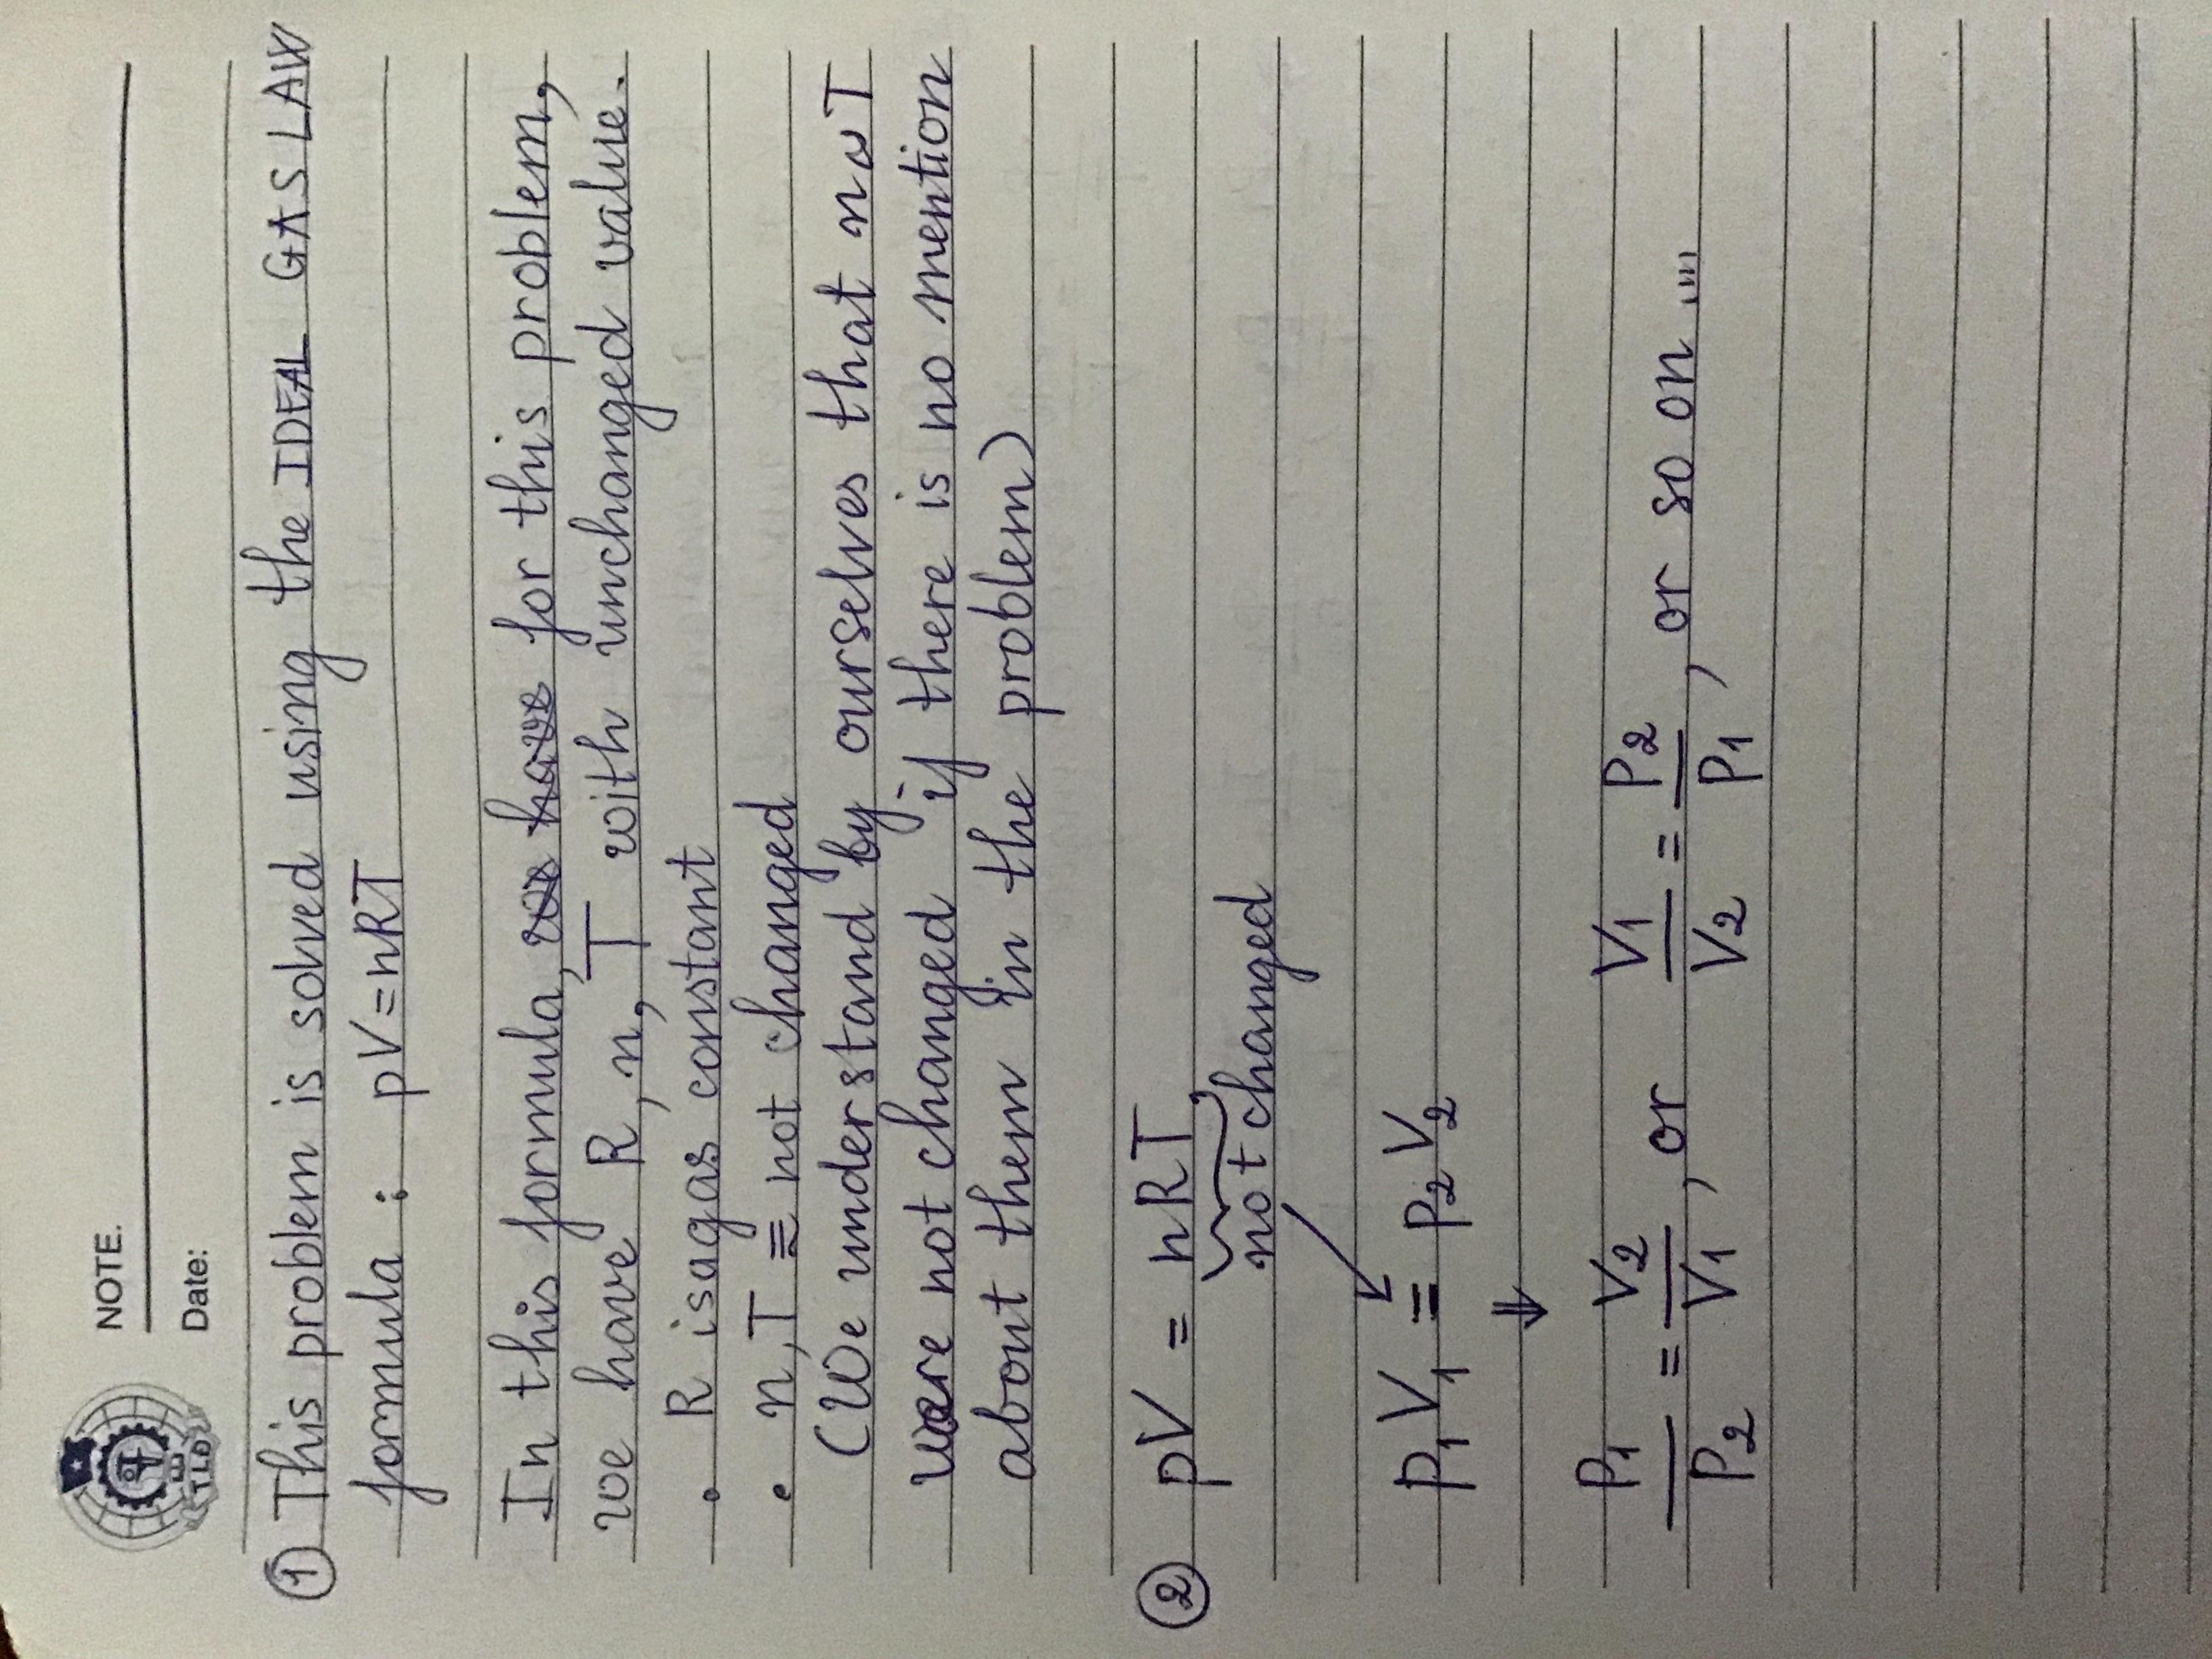 NOTE.
Date:
T.L.D
① This problem is solved using the IDEAL GAS LAW
formula : pV = nRT
In this formula, we have for this problem,
we have R, n, T with unchanged value.
• R is a gas constant
• n, T ≡ not changed
(We understand by ourselves that n ω T
were not changed if there is no mention
about them in the problem)
② pV = nRT
not changed
P₁V₁ ≡ P₂V₂
⇓
P₁/P₂ = V₂/V₁, or V₁/V₂ = P₂/P₁, or so on ...